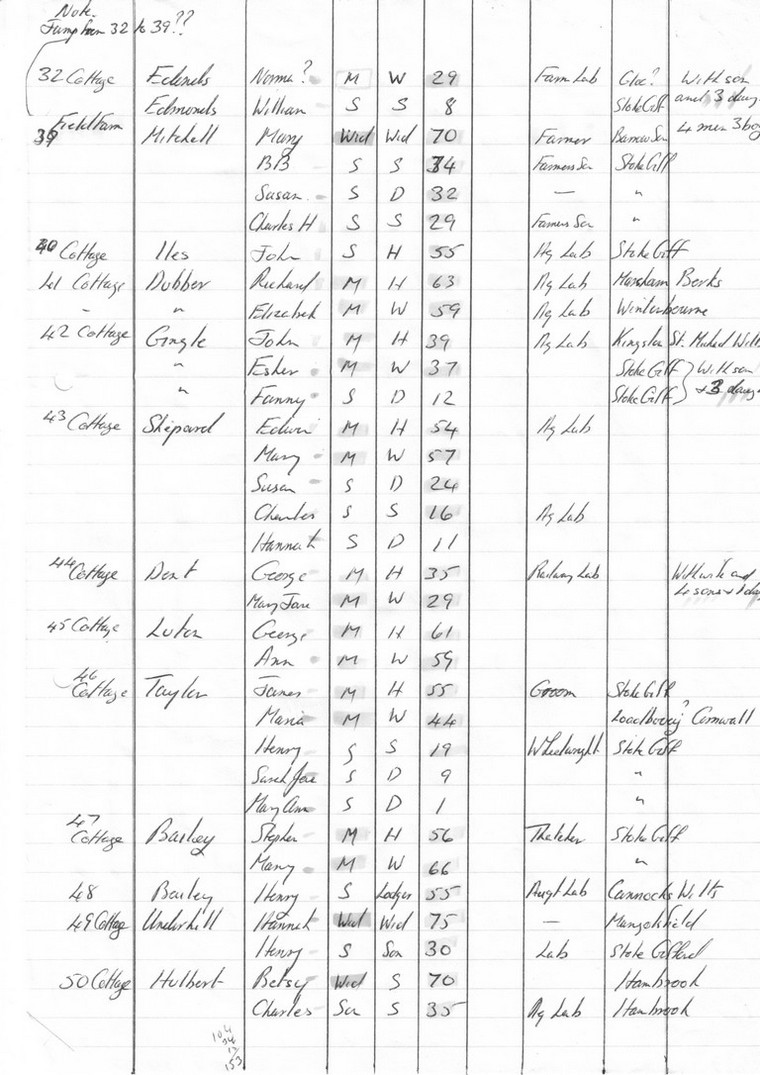 Note.
Jump from 32 to 39??
32 Cottage Edmonds Norma? M W 29 Farm Lab Gloc? With son
Edmonds William S S 8 Stoke Giff and 3 daug
Field Farm 4 men 3 boy
39 Mitchell Mary Wid Wid 70 Farmer Barrow Som
BB S S 34 Farmers Son Stoke Giff
Susan S D 32 — "
Charles H S S 29 Farmers Son "
40 Cottage Iles John S H 55 Ag Lab Stoke Giff
41 Cottage Dubber Richard M H 63 Ag Lab Berks
" " Elizabeth M W 59 Ag Lab Winterbourne
42 Cottage Gingle John M H 39 Ag Lab Kingston St. Michael Wilts
" Esher M W 37 Stoke Giff } With son
" Fanny S D 12 Stoke Giff } + 3 daug
43 Cottage Shipard Edwin M H 54 Ag Lab
Mary M W 57
Susan S D 24
Charles S S 16 Ag Lab
Hannah S D 11
44 Cottage Dent George M H 35 Railway Lab With wife and
Mary Jane M W 29 4 sons + 1 da
45 Cottage Luton George M H 61
Ann M W 59
46
Cottage Taylor James M H 55 Groom Stoke Giff
Maria M W 44 ? Cornwall
Henry S S 19 Wheelwright Stoke Giff
Sarah Jane S D 9 "
Mary Ann S D 1 "
47
Cottage Bailey Stephen M H 56 Thatcher Stoke Giff
Mary M W 66 "
48 Bailey Henry S Lodger 55 Lab Cannocks Wilts
49 Cottage Underhill Hannah Wid Wid 75 — Mangotsfield
Henry S Son 30 Lab Stoke Gifford
50 Cottage Hulbert Betsy Wid S 70 Hambrook
Charles Son S 35 Ag Lab Hambrook
104
34
153